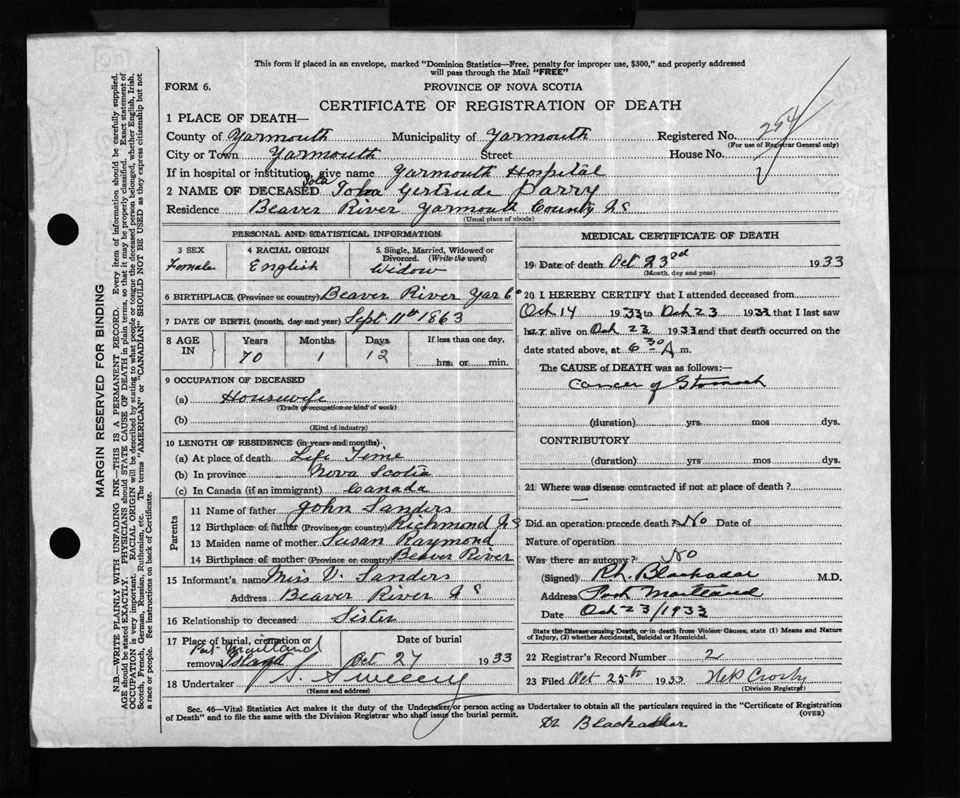 This form if placed in an envelope, marked "Dominion Statistics—Free, penalty for improper use, $300," and properly addressed
will pass through the Mail "FREE"
FORM 6.
PROVINCE OF NOVA SCOTIA
CERTIFICATE OF REGISTRATION OF DEATH
1 PLACE OF DEATH—
County of Yarmouth Municipality of Yarmouth Registered No. 254
(For use of Registrar General only)
City or Town Yarmouth Street House No.
If in hospital or institution, give name Yarmouth Hospital
Iola
2 NAME OF DECEASED Gertrude Parry
Residence Beaver River Yarmouth County NS
(Usual place of abode)
PERSONAL AND STATISTICAL INFORMATION
3 SEX 4 RACIAL ORIGIN 5 Single, Married, Widowed or Divorced. (Write the word)
Female English Widow
6 BIRTHPLACE (Province or country) Beaver River Yar Co
7 DATE OF BIRTH (month, day and year) Sept 11th 1863
8 AGE IN Years Months Days If less than one day,
70 1 12 hrs. or min.
9 OCCUPATION OF DECEASED
(a) Housewife
(Trade or occupation or kind of work)
(b)
(Kind of industry)
10 LENGTH OF RESIDENCE (in years and months)
(a) At place of death Life Time
(b) In province Nova Scotia
(c) In Canada (if an immigrant) Canada
Parents
11 Name of father John Sanders
12 Birthplace of father (Province or country) Richmond NS
13 Maiden name of mother Susan Raymond
14 Birthplace of mother (Province or country) Beaver River
15 Informant's name Miss V. Sanders
Address Beaver River NS
16 Relationship to deceased Sister
17 Place of burial, cremation or removal Date of burial
Port Maitland
Oct 27 1933
18 Undertaker S. Sweeny
(Name and address)
MEDICAL CERTIFICATE OF DEATH
19 Date of death Oct 23rd 1933
(Month, day and year)
20 I HEREBY CERTIFY that I attended deceased from
Oct 14 1933 to Oct 23 1933 that I last saw
her alive on Oct 23 1933 and that death occurred on the
date stated above, at 6 30 A m.
The CAUSE of DEATH was as follows:—
Cancer of Stomach
(duration) yrs mos dys.
CONTRIBUTORY
(duration) yrs. mos. dys.
21 Where was disease contracted if not at place of death?
Did an operation precede death? No Date of
Nature of operation
Was there an autopsy? No
(Signed) Blackadar M.D.
Address Port Maitland
Date Oct 23/1933
State the Disease causing Death, or in death from Violent Causes, state (1) Means and Nature
of Injury, (2) whether Accidental, Suicidal or Homicidal.
22 Registrar's Record Number 2
23 Filed Oct 25th 1933 Crosby
(Division Registrar)
Sec. 46—Vital Statistics Act makes it the duty of the Undertaker or person acting as Undertaker to obtain all the particulars required in the "Certificate of Registration
of Death" and to file the same with the Division Registrar who shall issue the burial permit. (OVER)
Dr Blackadar
MARGIN RESERVED FOR BINDING
N.B.—WRITE PLAINLY WITH UNFADING INK—THIS IS A PERMANENT RECORD. Every item of information should be carefully supplied.
AGE should be stated EXACTLY. PHYSICIANS should STATE CAUSE OF DEATH in plain terms, so that it may be properly classified. Exact statement of
OCCUPATION is very important. RACIAL ORIGIN will be described by stating to what people or tongue the deceased person belonged, whether English, Irish,
Scotch, French, German, Russian, Ruthenian, etc. The terms "AMERICAN" or "CANADIAN" SHOULD NOT BE USED as they express citizenship but not
a race or people. See instructions on back of Certificate.